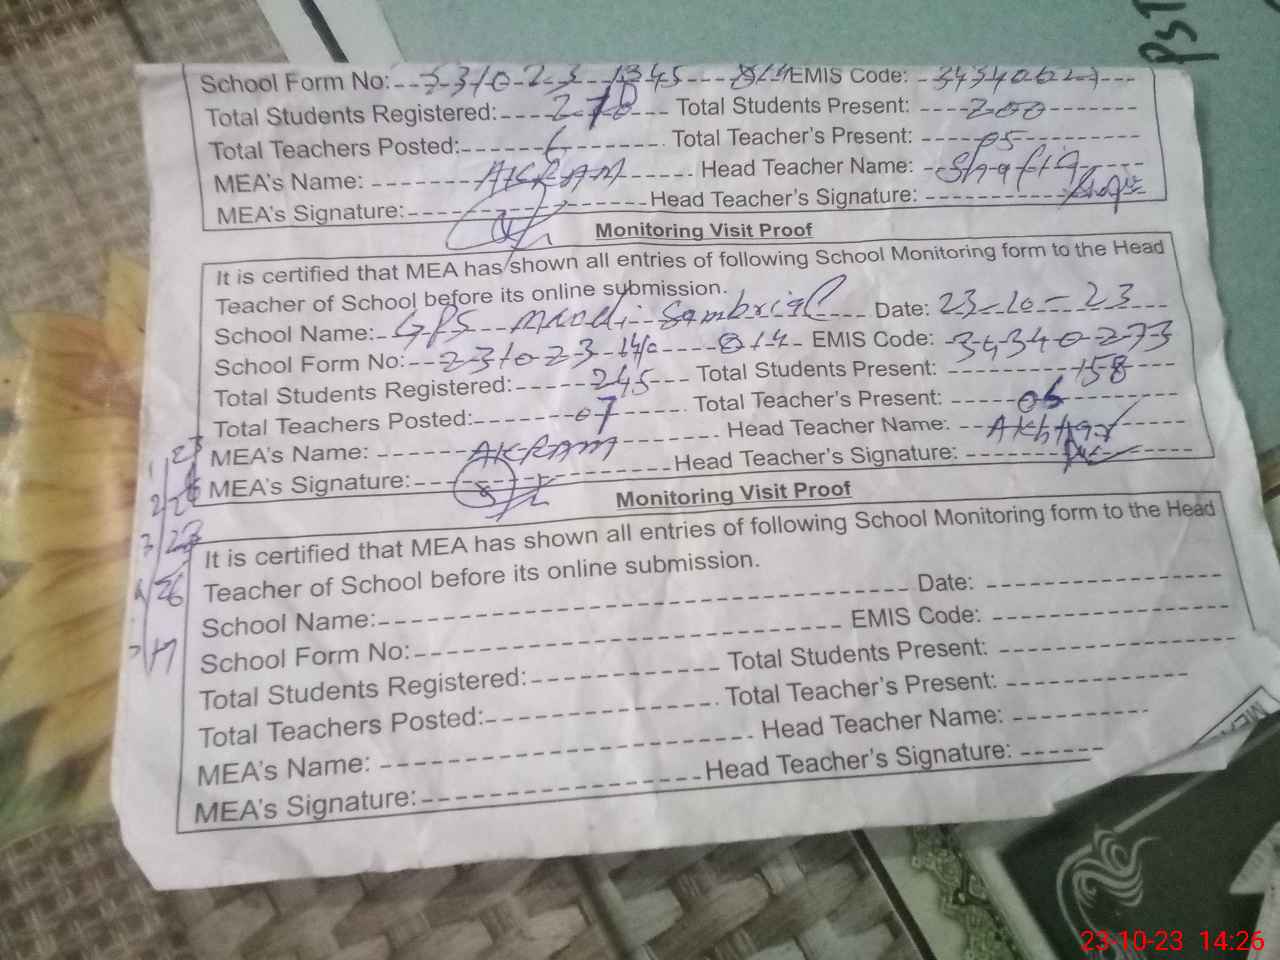 PST
School Form No: EMIS Code:
Total Students Registered: 270 Total Students Present: 200
Total Teachers Posted: 6 Total Teacher's Present: 05
MEA's Name: AKRAM Head Teacher Name: Shafia
MEA's Signature: Head Teacher's Signature:
Monitoring Visit Proof
It is certified that MEA has shown all entries of following School Monitoring form to the Head
Teacher of School before its online submission.
School Name: GPS Sambrial Date: 23-10-23
School Form No: 231023 814 EMIS Code: 34340273
Total Students Registered: 245 Total Students Present: 158
Total Teachers Posted: 07 Total Teacher's Present: 06
MEA's Name: AKRAM Head Teacher Name: Akhtar
MEA's Signature: Head Teacher's Signature:
Monitoring Visit Proof
It is certified that MEA has shown all entries of following School Monitoring form to the Head
Teacher of School before its online submission.
School Name: Date:
School Form No: EMIS Code:
Total Students Registered: Total Students Present:
Total Teachers Posted: Total Teacher's Present:
MEA's Name: Head Teacher Name:
MEA's Signature: Head Teacher's Signature:
1 23
2 26
3 23
4 26
5 17
23-10-23 14:26